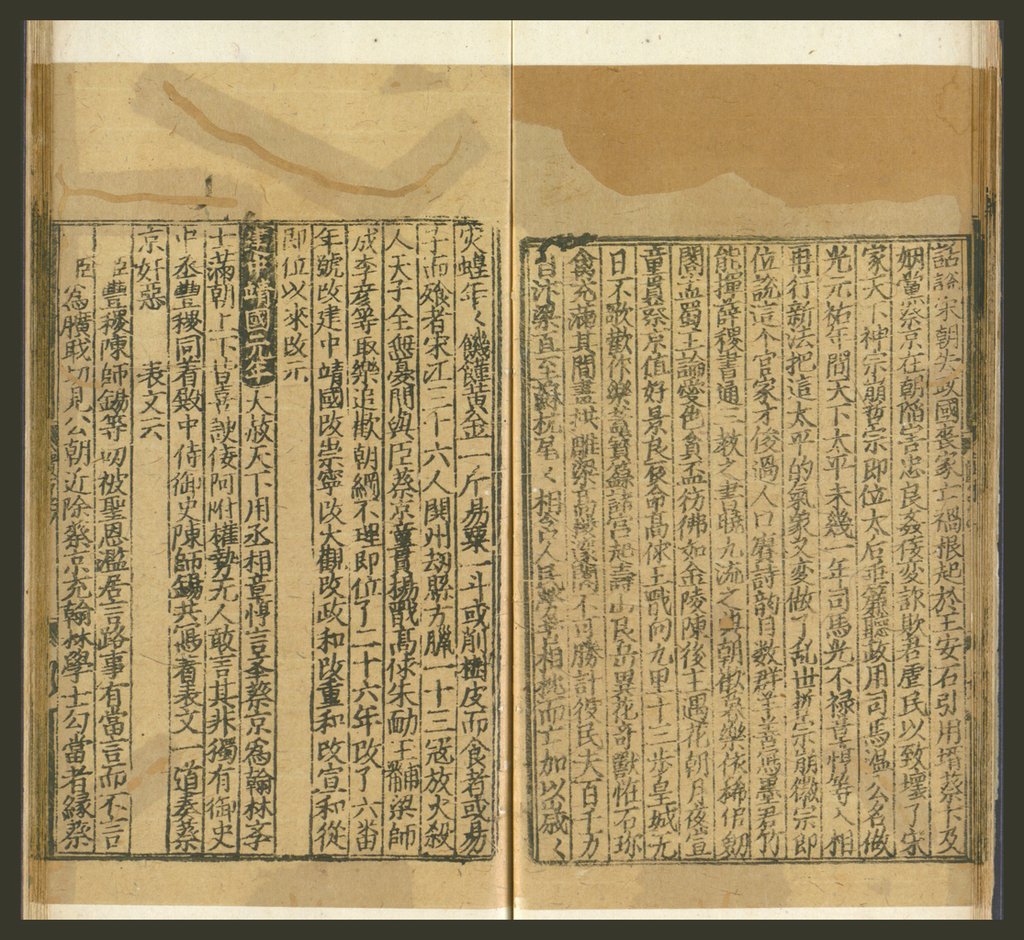 話說宋朝失政國喪家亡禍根起於王安石引用壻蔡卞及
姻黨蔡京在朝陷害忠良姦佞変詐欺君虐民以致壞了宋
家天下神宗崩哲宗即位太后垂簾聽政用司馬温公名做
光元祐年間天下太平未幾一年司馬光不禄章惇等入相
再行新法把這太平的氣象又变做了乱世哲宗崩徽宗即
位說這个官家才俊過人口賡詩韵目数群羊善寫墨君竹
能揮薛稷書通三教之書曉九流之典朝歡暮樂依稀侣劒
閣孟蜀王論愛色貪盃彷彿如金陵陳後主遇花朝月夜宣
童貫蔡京值好景良辰命高俅王戩向九里十三步皇城无
日不歌歡作樂蓋寳籙諸宫起壽山艮岳異花奇獸怪石珍
禽充滿其間畫栱雕梁高樓邃閣不可勝計役民夫百千万
自汴梁直至蘇杭尾々相含人民勞苦相枕而亡加以歲々
灾蝗年々饑饉黄金一斤易粟一斗或削樹皮而食者或易
子而飱者宋江三十六人閧州劫縣方臘一十三冦放火殺
人天子全無憂問與臣蔡京童貫楊戩高俅朱勔王黼梁師
成李彦等取樂追歡朝綱不理即位了二十六年改了六番
年號改建中靖國改崇寧改大觀改政和改重和改宣和從
即位以來改元
建中靖國元年大赦天下用丞相章惇言舉蔡京為翰林斈
士滿朝上下皆喜諛佞阿附權勢无人敢言其非獨有御史
中丞豐稷同着殿中侍御史陳師錫共寫着表文一道奏蔡
京奸惡 表文云
臣豐稷陳師錫等叨被聖恩濫居言路事有當言而不言
臣為曠戝切見公朝近除蔡京充翰林學士勾當者緣蔡